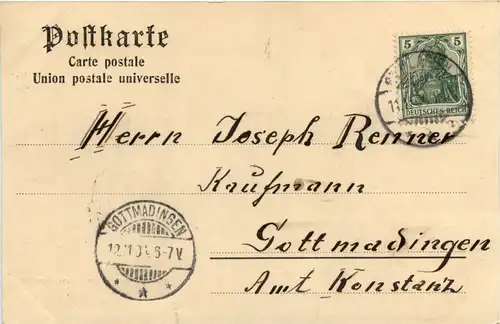 Postkarte
Carte postale
Union postale universelle
5 5
DEUTSCHES REICH
Herrn Joseph Renner
Kaufmann
Gottmadingen
Amt Konstanz
GOTTMADINGEN